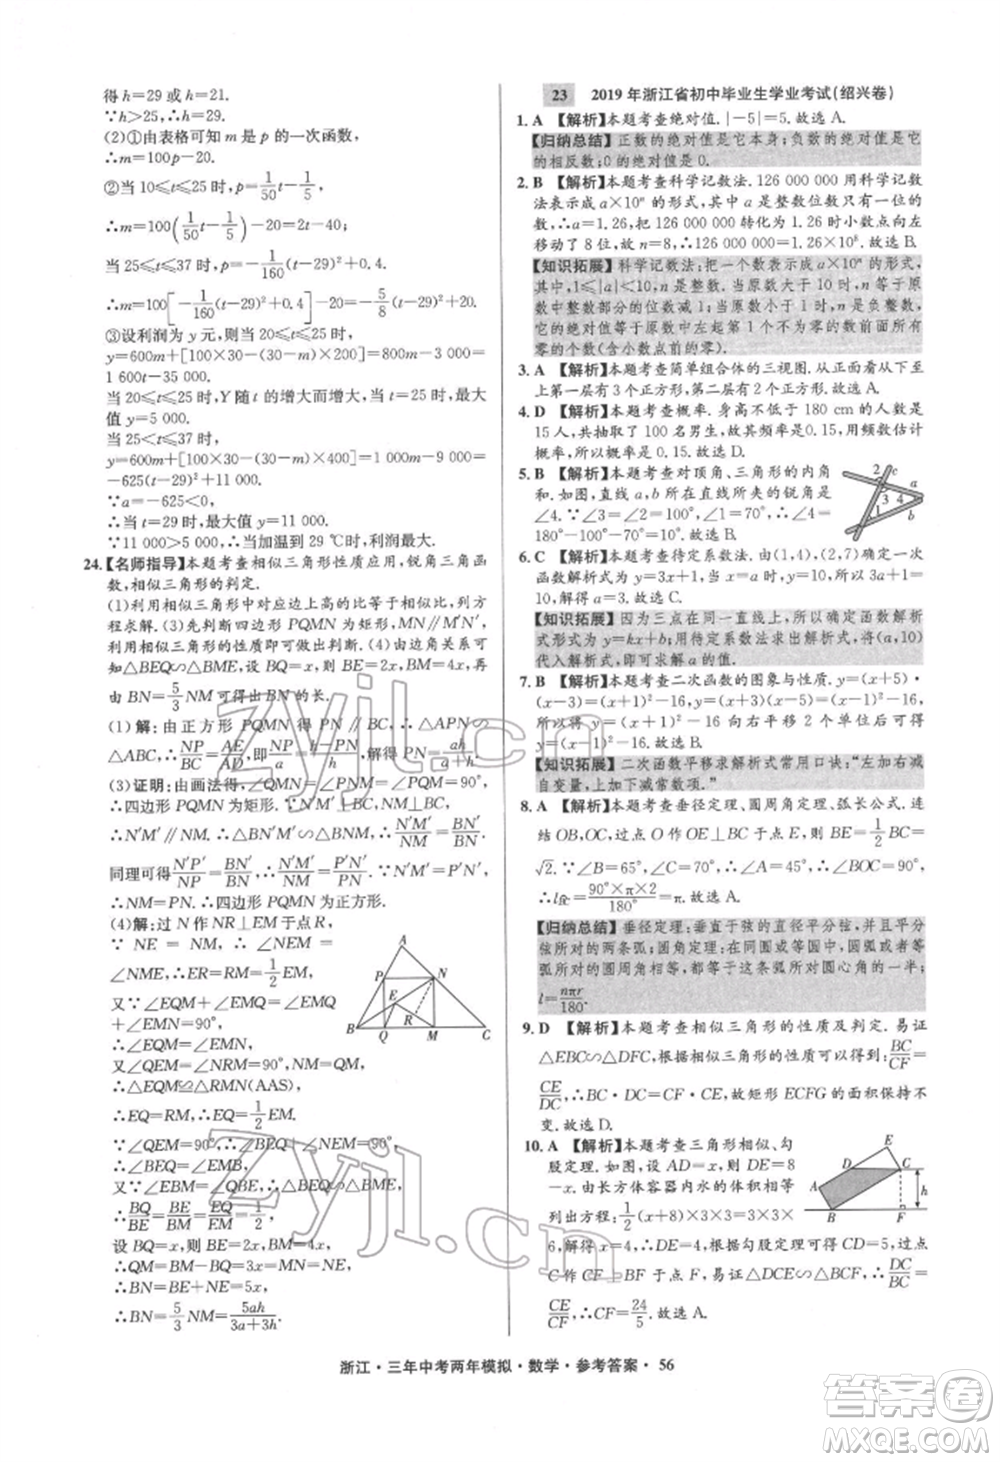 得h=29或h=21.
∵h>25,∴h=29.
(2)①由表格可知m是p的一次函数,
∴m=100p-20.
②当10≤t≤25时,p=1/50t-1/5,
∴m=100(1/50t-1/5)-20=2t-40.
当25≤t≤37时,p=-1/160(t-29)²+0.4.
∴m=100[-1/160(t-29)²+0.4]-20=-5/8(t-29)²+20.
③设利润为y元,则当20≤t≤25时,
y=600m+[100×30-(30-m)×200]=
1 600t-35 000.
当20≤t≤25时,y随t的增大而增大,
最大值y=5 000.
当25<t≤37时,
y=600m+[100×30-(30-m)×200]=
-625(t-29)²+11 000.
∵a=-625<0,
∴当t=29时,最大值y=11 000.
∵11 000>5 000,∴当加温到29℃时,利润最大.
24.【名师指导】本题考查相似三角形性质应用,锐角三角函
数,相似三角形的判定.
(1)利用相似三角形中对应边上高的比等于相似比,列方
程求解.(3)先判断四边形PQMN为矩形,MN∥M′N′,
利用相似三角形的性质可以作出判断.(4)由条件可以得
知△BEQ∽△BME,设BQ=x,则BE=2x,BM=4x,可
由BN=5/3NM可得BN的长.
(1)解:由正方形PQMN得PN∥BC,∴△APN∽
△ABC,∴NP/BC=AE/AD,即PN/a=h-PN/h,解得PN=ah/a+h.
(3)证明:由画法得,∠QMN=∠PQM=90°,
∴四边形PQMN为矩形.
∴N′M′∥NM,∴△BN′M′∽△BNM,∴N′M′/NM=BN′/BN.
同理可得N′P′/NP=BN′/BN.∴N′M′/NM=N′P′/NP.∵N′M′=N′P′,
∴NM=PN.∴四边形PQMN为正方形.
(4)解:过N作NR⊥EM于点R,
∵NE=NM,∴∠NEM=
∠NME,∴ER=RM=1/2EM
又∵∠EQM+∠EMQ=∠EMQ+
∠EMN=90°,
∴∠EQM=∠EMN.
又∵∠QEM=∠NRM=90°,NM=QM,
∴△EQM≌△RMN(AAS),
∴EQ=RM,∴EQ=1/2EM,
∵∠QEM=90°,∴∠BEQ+∠NEM=90°,
∴∠BEQ=∠EMB.又∵∠EBM=∠QBE,
∴△BEQ∽△BME,
∴BQ/BE=BE/BM=EQ/EM=1/2,
设BQ=x,则BE=2x,BM=4x,
∴QM=BM-BQ=3x=MN=NE,
∴BN=BE+NE=5x,
∴BN=5/3NM=5ah/3a+3h.
23 2019年浙江省初中毕业生学业考试(绍兴卷)
1. A 【解析】本题考查绝对值.|-5|=5.故选A.
【归纳总结】正数的绝对值是它本身;负数的绝对值是它
的相反数;0的绝对值是0.
2. B 【解析】本题考查科学记数法.126 000 000用科学记数
法表示成a×10ⁿ的形式,其中a整数位数只有一位的
数,∴a=1.26,把126 000 000转化为1.26时小数点向左
移动了8位,故n=8,∴126 000 000=1.26×10⁸.故选B.
【知识拓展】科学记数法:把一个数表示为a×10ⁿ的形式,
其中,1≤|a|<10,n为整数,当原数大于10时,n等于原
数中整数部分的位数减1;当原数小于1时,n是负整数,
它的绝对值等于原数中左起第1个不为零的数前面所有
零的个数(含小数点前的零).
3. A 【解析】本题考查简单组合体的三视图.从正面看从下至
上第一层有3个正方形,第二层有2个正方形.故选A.
4. D 【解析】本题考查概率.身高不低于180 cm的人数是
15人,共抽取了100名男生,故其频率是0.15,用频率估计
概率,所以概率是0.15.故选D.
5. B 【解析】本题考查对顶角、三角形的内角
和.如图,直线a,b所在直线所夹的锐角是
∠4.∵∠2=100°,∴∠3=∠2=100°,∴∠4=
180°-100°-70°=10°.故选B.
6. C 【解析】本题考查待定系数法.由(1,4),
(2,7)可求解析式为y=3x+1,当y=10时,即3a+1=10,
解得a=3.故选C.
【知识拓展】因为三点在同一直线上,所以确定函数解析
式形式为y=kx+b;用待定系数法求出解析式,将(a,10)
代入解析式,即可求出a的值.
7. B 【解析】本题考查二次函数的图象与性质.y=(x+5)·
(x-3)=(x+1)²-16,y=(x+3)(x-5)=(x-1)²-16.
y=(x+1)²-16向右平移2个单位后可得
y=(x-1)²-16.故选B.
【知识拓展】二次函数平移求解析式常用口诀:"左加右减
自变量,上加下减常数项."
8. A 【解析】本题考查垂径定理、圆周角定理、弧长公式.连
结OB,OC,过点O作OE⊥BC于点E,则BE=1/2BC=
√2.∵∠B=65°,∠C=70°,∴∠A=45°,∴∠BOC=90°,
∴l=90°×π×2/180°=π.故选A.
【归纳总结】垂径定理:垂直于弦的直径平分弦,并且平分
弦所对的两条弧;圆周角定理:在同圆或等圆中,同弧或等
弧所对的圆周角相等,都等于这条弧所对圆心角的一半;
l=nπr/180.
9. D 【解析】本题考查相似三角形的性质及判定.易证
△EBC∽△DFC,根据相似三角形的性质可以得到:BC/FC=
CE/DC,∴BC·DC=CF·CE,故矩形ECFG的面积保持不
变.故选D.
10. A 【解析】本题考查三角形相似、勾
股定理.如图设AD=x,则DE=8
-x,根据长方体容器内水的体积可
列出方程:1/2(x+8)×3×3=3×3×
6,解得x=4,∴DE=4,根据勾股定理可得CD=5,过点
C作CF⊥BF于点F,易证△CDE∽△BCF,∴DC/BC=
CE/CF,∴CF=24/5.故选A.
2 c a 3 4 1 b
A P N E R B Q M C
E D C A h B F
浙江·三年中考两年模拟·数学·参考答案·56
zyjl.cn
zyjl.cn
答案圈
MXQE.COM